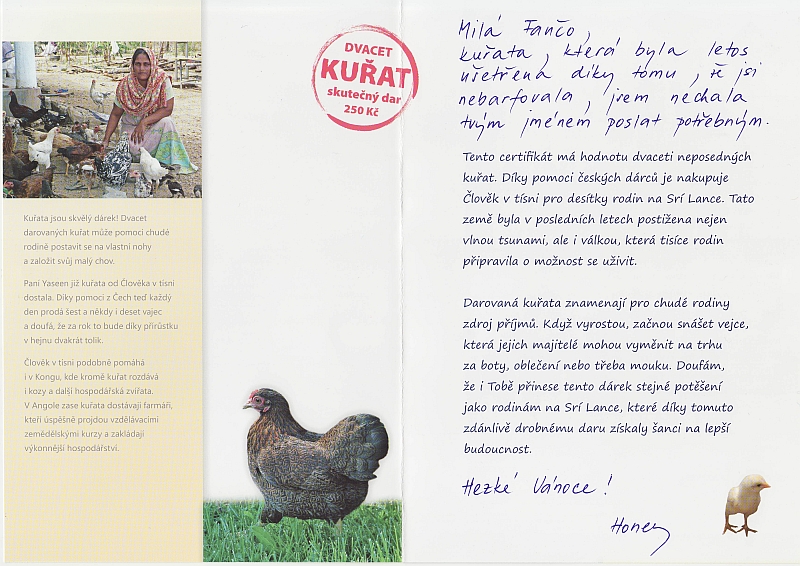 Kuřata jsou skvělý dárek! Dvacet
darovaných kuřat může pomoci chudé
rodině postavit se na vlastní nohy
a založit svůj malý chov.
Paní Yaseen již kuřata od Člověka v tísni
dostala. Díky pomoci z Čech teď každý
den prodá šest a někdy i deset vajec
a doufá, že za rok to bude díky přírůstku
v hejnu dvakrát tolik.
Člověk v tísni podobně pomáhá
i v Kongu, kde kromě kuřat rozdává
i kozy a další hospodářská zvířata.
V Angole zase kuřata dostávají farmáři,
kteří úspěšně projdou vzdělávacími
zemědělskými kurzy a zakládají
výkonnější hospodářství.
DVACET
KUŘAT
skutečný dar
250 Kč
Milá Fančo,
kuřata, která byla letos
ušetřena díky tomu, že jsi
nebarfovala, jsem nechala
tvým jménem poslat potřebným.
Tento certifikát má hodnotu dvaceti neposedných
kuřat. Díky pomoci českých dárců je nakupuje
Člověk v tísni pro desítky rodin na Srí Lance. Tato
země byla v posledních letech postižena nejen
vlnou tsunami, ale i válkou, která tisíce rodin
připravila o možnost se uživit.
Darovaná kuřata znamenají pro chudé rodiny
zdroj příjmů. Když vyrostou, začnou snášet vejce,
která jejich majitelé mohou vyměnit na trhu
za boty, oblečení nebo třeba mouku. Doufám,
že i Tobě přinese tento dárek stejné potěšení
jako rodinám na Srí Lance, které díky tomuto
zdánlivě drobnému daru získaly šanci na lepší
budoucnost.
Hezké Vánoce!
Honey